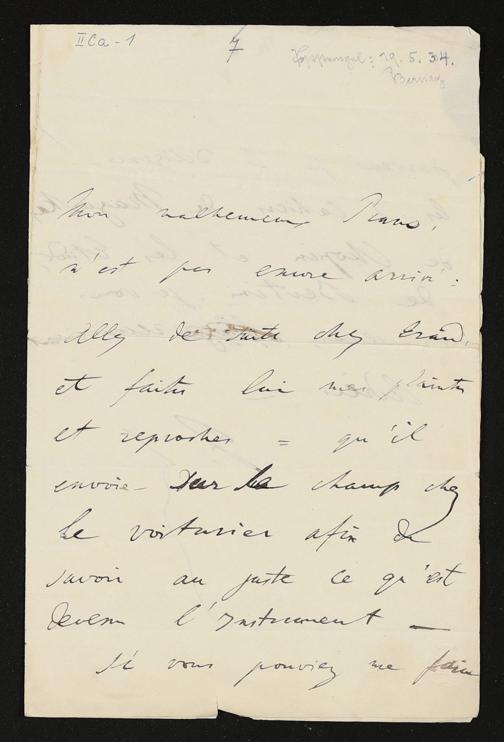 IICa-1
7
19. 5. 34.
Mon malheureux Piano,
n'est pas encore arrivé:
Allez de suite chez Erard,
et faites lui mes plaintes
et reproches = qu'il
envoie – sur le champ chez
le voiturier afin de
savoir au juste ce qu'est
devenu l'Instrument —
Si vous pouviez me faire